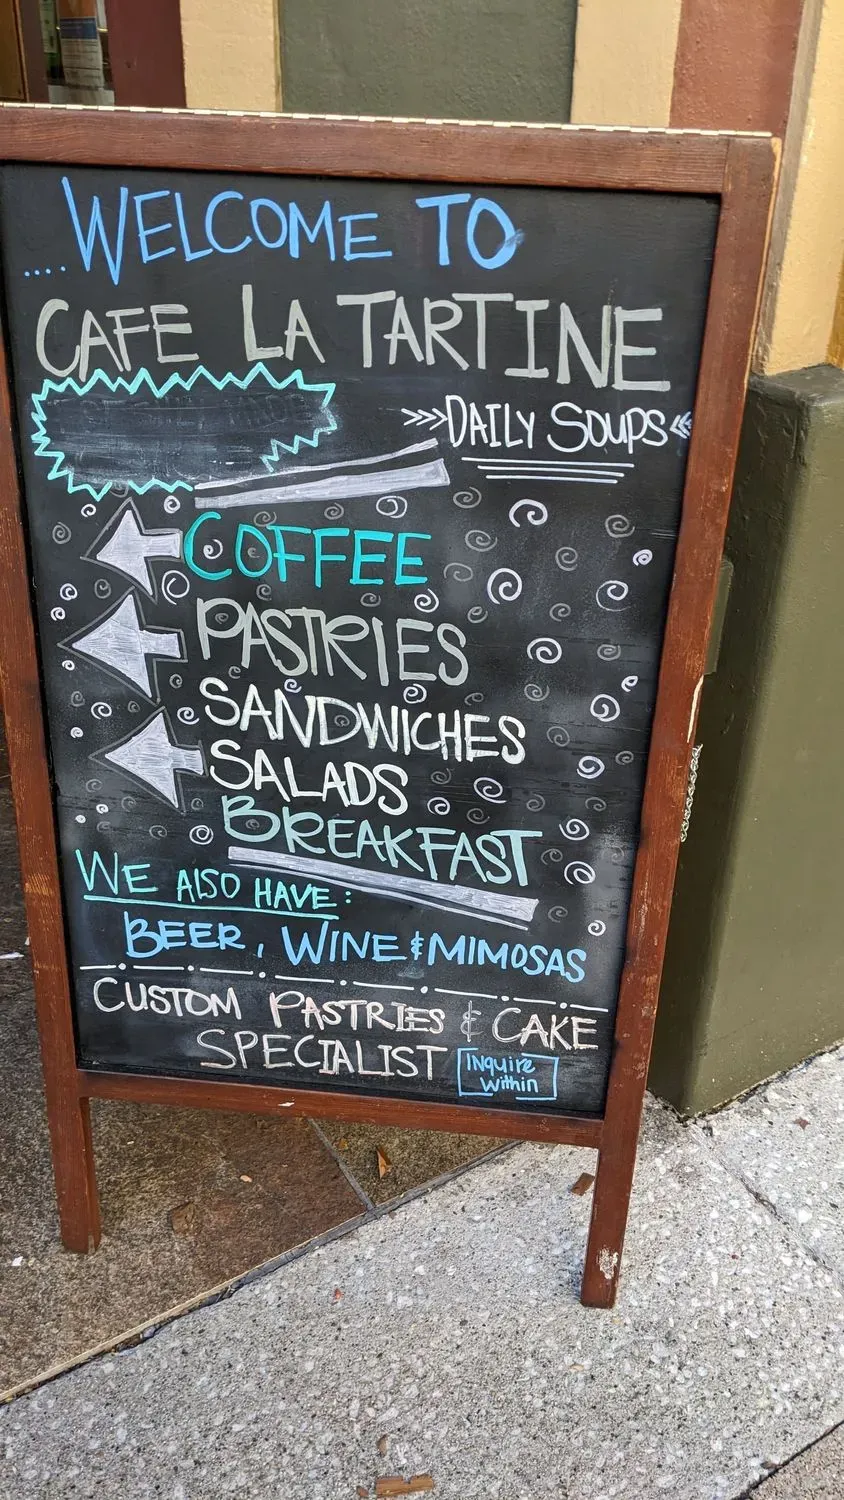 ....WELCOME TO
CAFE LA TARTINE
>>>DAILY SOUPS<<
COFFEE
PASTRIES
SANDWICHES
SALADS
BREAKFAST
WE ALSO HAVE:
BEER, WINE & MIMOSAS
CUSTOM PASTRIES & CAKE
SPECIALIST
INquire
within